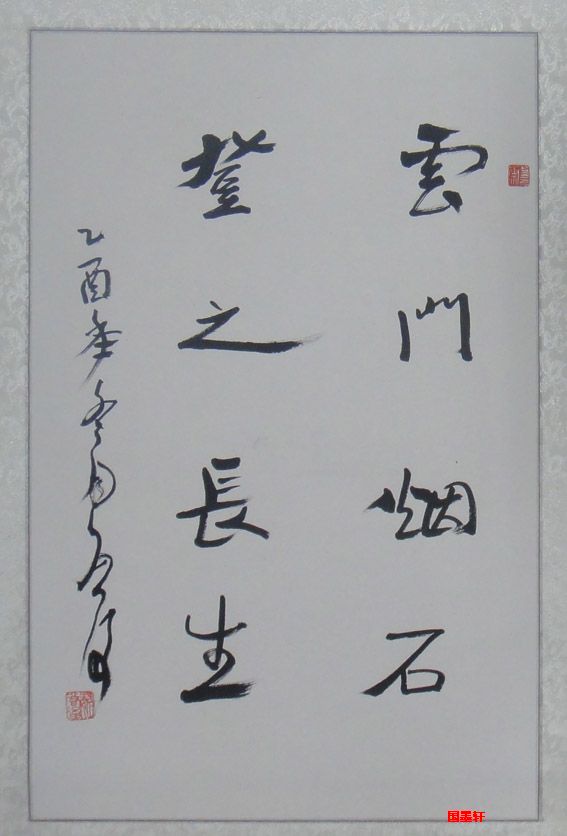 雲門烟石
登之長生
乙酉年冬月
国墨轩